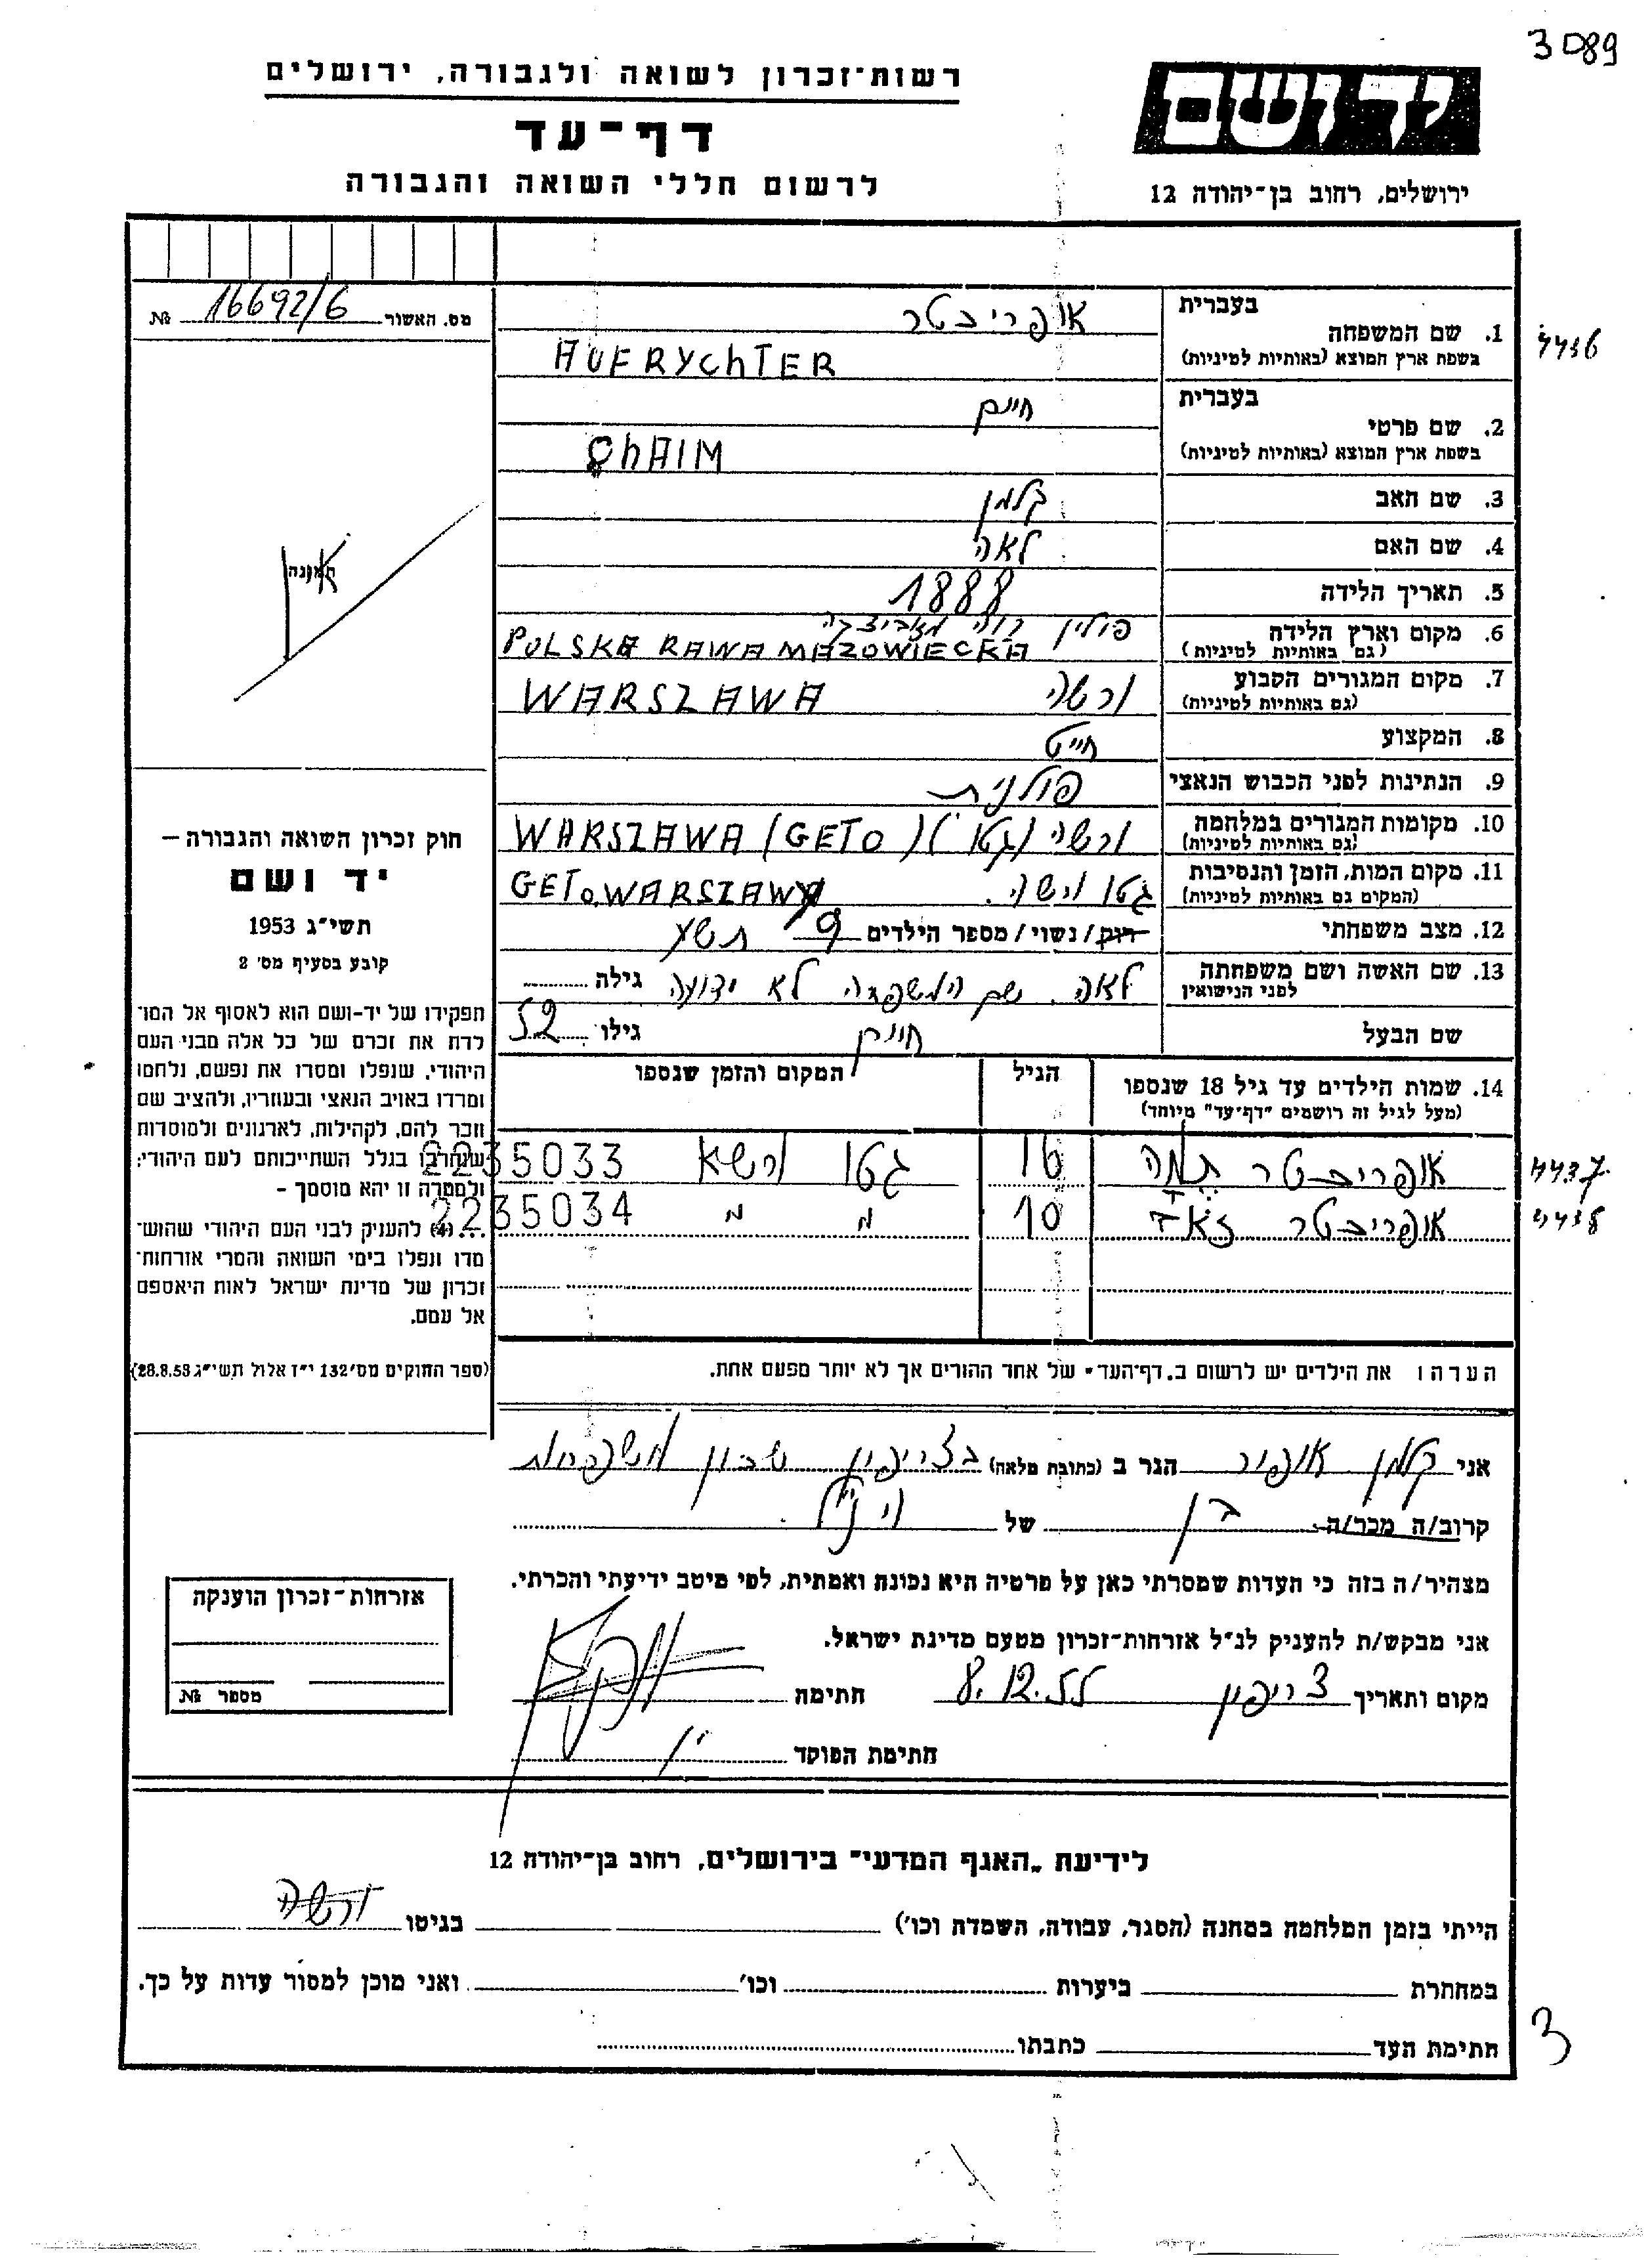 3089
רשות־זכרון לשואה ולגבורה, ירושלים
דף־עד
לרשום חללי השואה והגבורה
יד ושם
ירושלים, רחוב בן־יהודה 12
מס. האשור 16692/6 №
תמונה
חוק זכרון השואה והגבורה —
יד ושם
תשי״ג 1953
קובע בסעיף מס׳ 2
תפקידו של יד-ושם הוא לאסוף אל המו־
לדת את זכרם של כל אלה מבני העם
היהודי, שנפלו ומסרו את נפשם, נלחמו
ומרדו באויב הנאצי ובעוזריו, ולהציב שם
וזכר להם, לקהילות, לארגונים ולמוסדות
שנחרבו בגלל השתייכותם לעם היהודי;
ולמטרה זו יהא מוסמך -
...(4) להעניק לבני העם היהודי שהוש־
מדו ונפלו בימי השואה והמרי אזרחות־
זכרון של מדינת ישראל לאות היאספם
אל עמם.
(ספר החוקים מס׳ 132 י״ז אלול תשי״ג 28.8.53)
בעברית אופריכטר
1. שם המשפחה
בשפת ארץ המוצא (באותיות לטיניות) AUFRYChTER
4436
בעברית חיים
2. שם פרטי
בשפת ארץ המוצא (באותיות לטיניות) ChAIM
3. שם האב קלמן
4. שם האם לאה
5. תאריך הלידה 1888
6. מקום וארץ הלידה פולין רווה מזוביצקה
(גם באותיות לטיניות) POLSKA RAWA MAZOWIECKA
7. מקום המגורים הקבוע ורשה WARSZAWA
(גם באותיות לטיניות)
8. המקצוע חייט
9. הנתינות לפני הכבוש הנאצי פולנית
10. מקומות המגורים במלחמה ורשה (גטו) WARSZAWA (GETO)
(גם באותיות לטיניות)
11. מקום המות, הזמן והנסיבות גטו ורשה. GETO WARSZAWA
(המקום גם באותיות לטיניות)
12. מצב משפחתי רוק/נשוי/מספר הילדים 9 תשע
13. שם האשה ושם משפחתה לאה. שם המשפחה לא ידועה גילה
לפני הנישואין
שם הבעל חיים גילו 52
14. שמות הילדים עד גיל 18 שנספו הגיל המקום והזמן שנספו
(מעל לגיל זה רושמים "דף־עד" מיוחד)
אופריכטר 16 גטו ורשא 2235033
4437
אופריכטר 10 " " 2235034
4438
הערה: את הילדים יש לרשום ב„דף־העד" של אחד ההורים אך לא יותר מפעם אחת.
אני קלמן אופיר הגר ב (כתובת מלאה) בצריפין שכון משפחות
קרוב/ה מכר/ה בן של
מצהיר/ה בזה כי העדות שמסרתי כאן על פרטיה היא נכונה ואמתית, לפי מיטב ידיעתי והכרתי.
אני מבקש/ת להעניק לנ״ל אזרחות-זכרון מטעם מדינת ישראל.
מקום ותאריך צריפין 8.12.55 חתימה
חתימת הפוקד
אזרחות־זכרון הוענקה
מספר №
לידיעת „האגף המדעי" בירושלים, רחוב בן־יהודה 12
הייתי בזמן המלחמה במחנה (הסגר, עבודה, השמדה וכו׳) בגיטו ורשה
במחתרת ביערות וכו׳ ואני מוכן למסור עדות על כך.
חתימת העד כתבתו
3